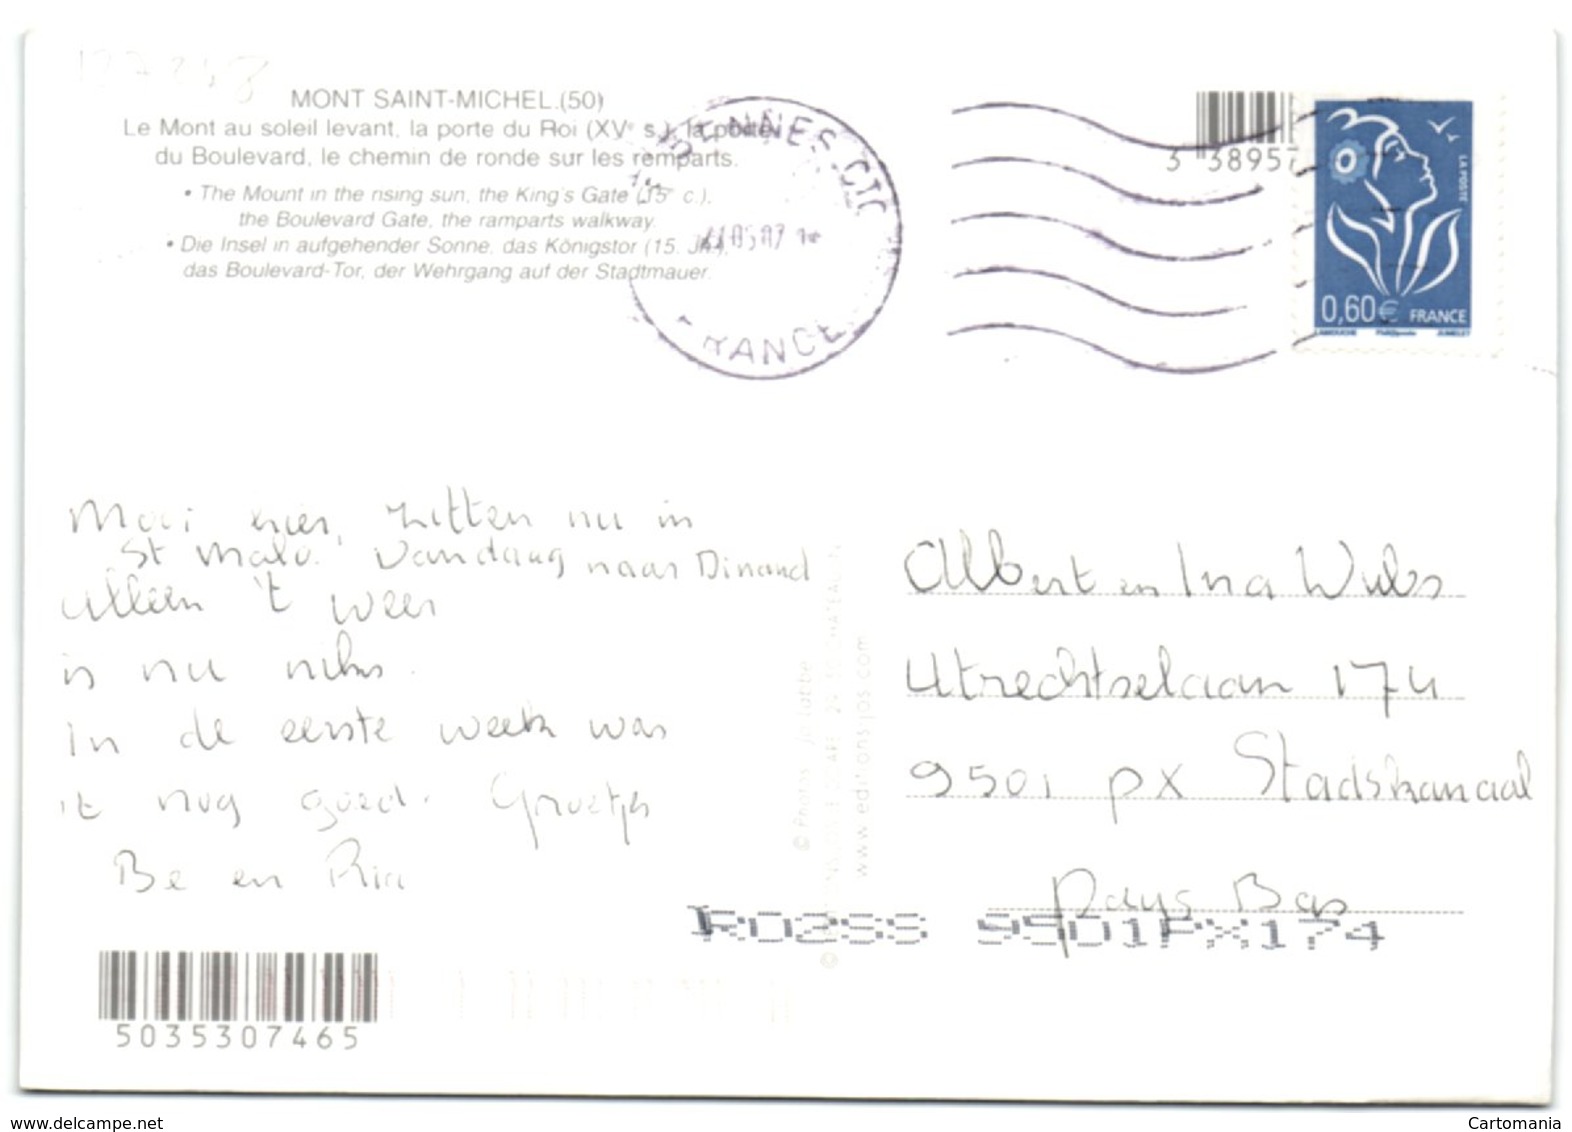 MONT SAINT-MICHEL.(50)
Le Mont au soleil levant, la porte du Roi (XVe s.), la porte
du Boulevard, le chemin de ronde sur les remparts.
• The Mount in the rising sun, the King's Gate (15e c.),
the Boulevard Gate, the ramparts walkway.
• Die Insel in aufgehender Sonne, das Königstor (15. Jh.),
das Boulevard-Tor, der Wehrgang auf der Stadtmauer.
RENNES CTC
FRANCE
3 38957
LA POSTE
0,60€ FRANCE
LAMOUCHE JUMELET
Mooi hier, zitten nu in
St Malo. Vandaag naar Dinand
alleen 't weer
is nu niks.
In de eerste week was
it nog goed. Groetjes
Be en Ria
Albert en Ina Wubs
Utrechtselaan 174
9501 PX Stadskanaal
Pays Bas
© Photos
www.editionsjos.com
9501PX174
5035307465
delcampe.net
Cartomania